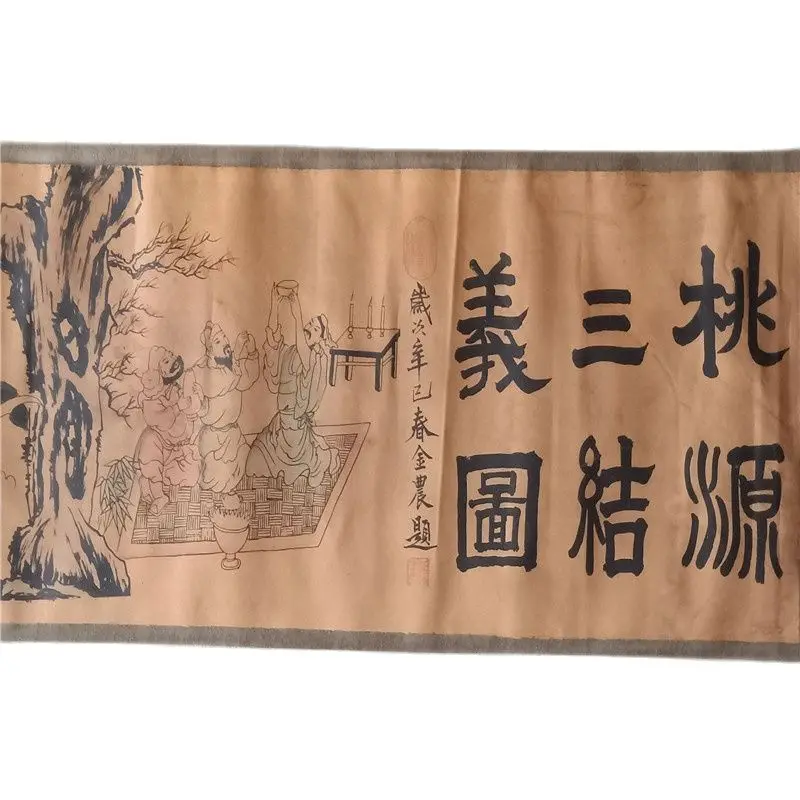 桃源
三結
義圖
歲次辛巳春金農題